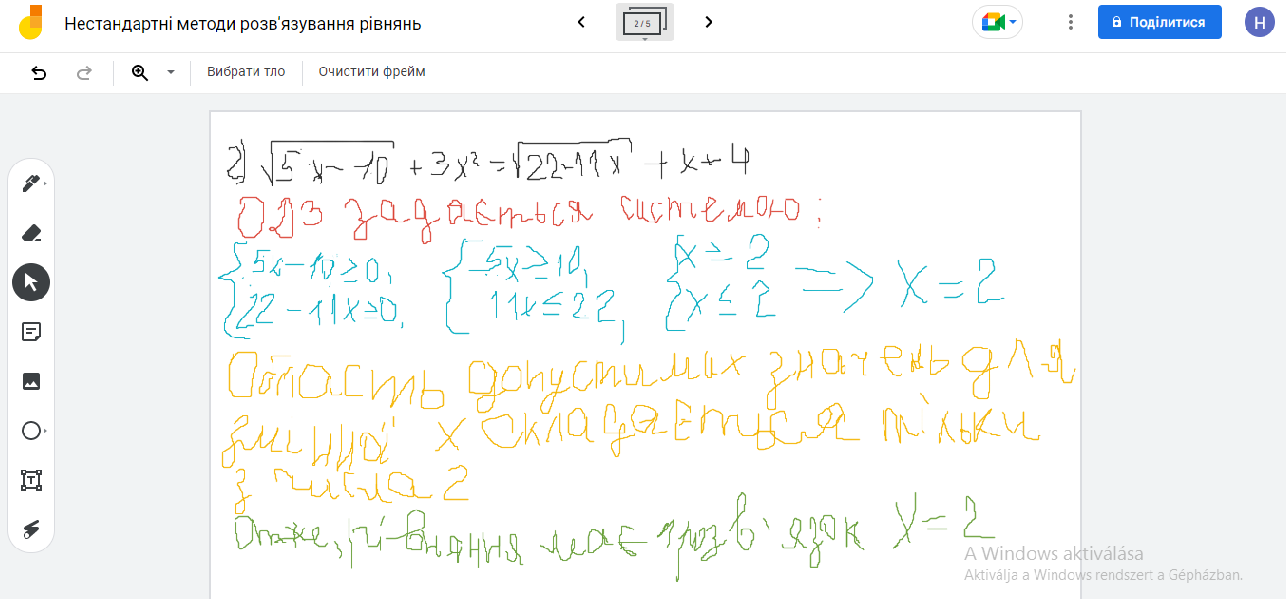 Нестандартні методи розв'язування рівнянь
2/5
Поділитися
Н
Вибрати тло
Очистити фрейм
2) √(5x-10) + 3x² = √(22-11x) + x + 4
ОДЗ задається системою:
{5x-10≥0, {5x≥10, {x≥2
{22-11x≥0, {11x≤22, {x≤2 => x=2
Область допустимих значень для
змінної x складається тільки
з числа 2
Отже, рівняння має розв'язок x=2
A Windows aktiválása
Aktiválja a Windows rendszert a Gépházban.